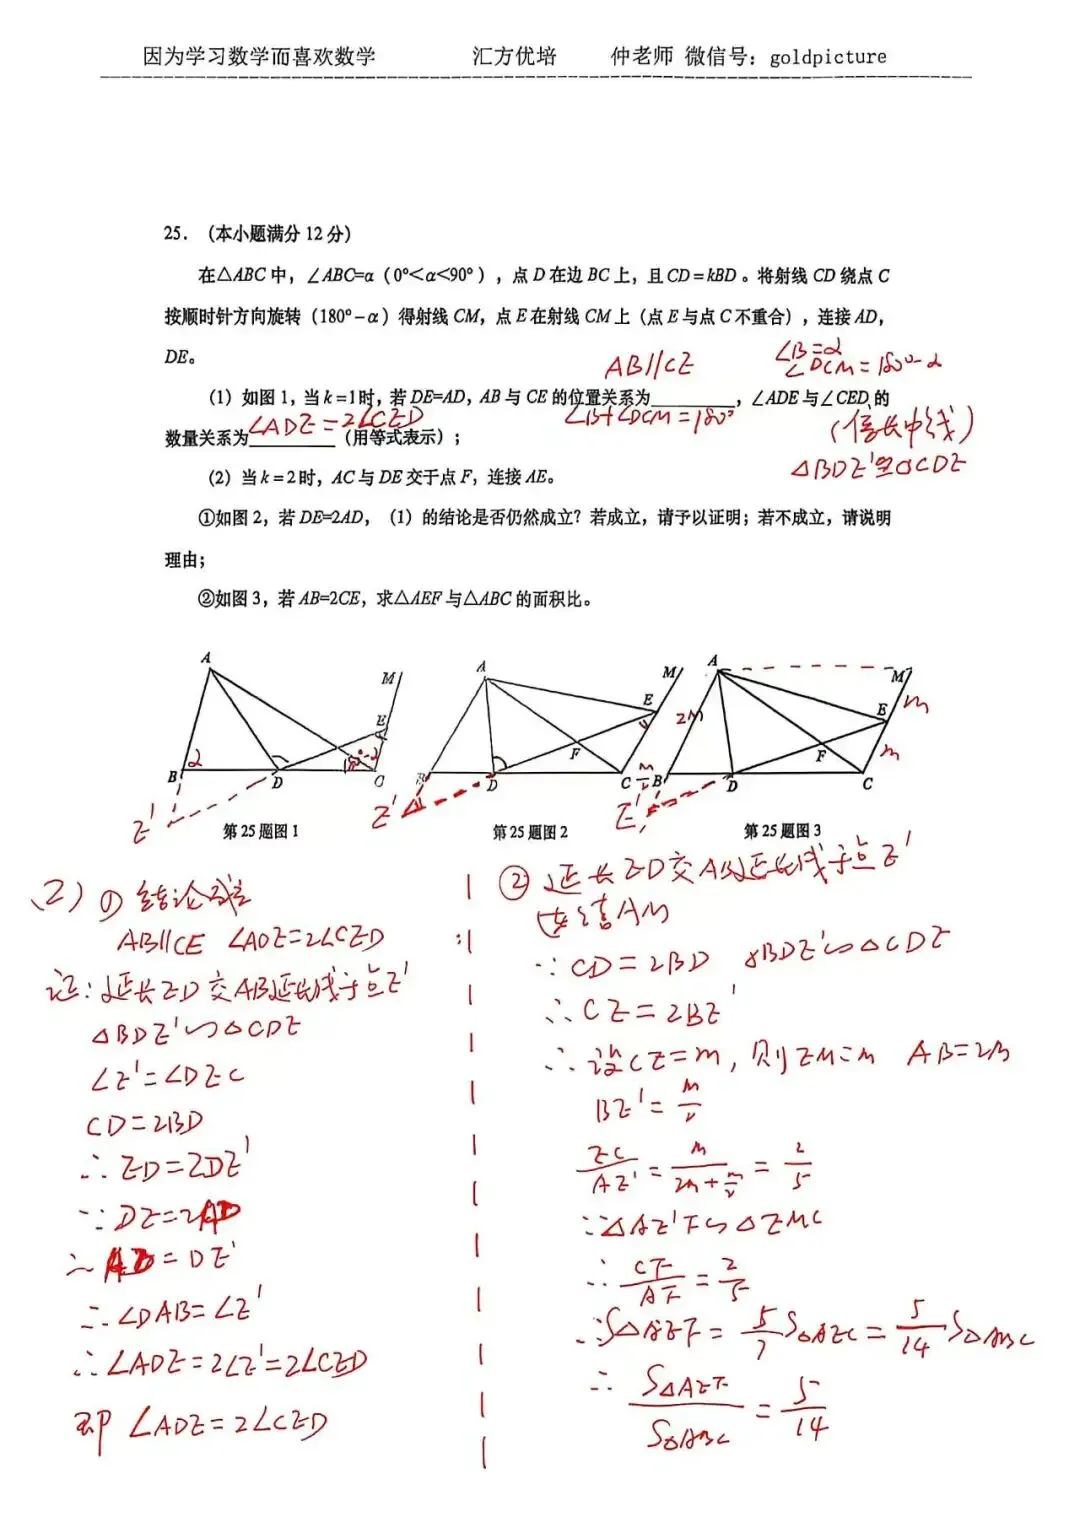 因为学习数学而喜欢数学 汇方优培 仲老师 微信号：goldpicture
25. （本小题满分 12 分）
在△ABC 中，∠ABC=α（0°＜α＜90°），点 D 在边 BC 上，且 CD=kBD。将射线 CD 绕点 C
按顺时针方向旋转（180°－α）得射线 CM，点 E 在射线 CM 上（点 E 与点 C 不重合），连接 AD，
DE。
AB//CE
∠B=α
∠DCM=180°-α
（1）如图 1，当 k=1时，若 DE=AD，AB 与 CE 的位置关系为________，∠ADE 与∠CED 的
∠B+∠DCM=180°
（倍长中线）
数量关系为________（用等式表示）；
∠ADE=2∠CED
△BDE'≌△CDE
（2）当 k=2时，AC 与 DE 交于点 F，连接 AE。
①如图 2，若 DE=2AD，（1）的结论是否仍然成立？若成立，请予以证明；若不成立，请说明
理由；
②如图 3，若 AB=2CE，求△AEF 与△ABC 的面积比。
A
M
E
B
α
D
C
E'
第 25 题图 1
A
M
E
F
B
D
C
E'
第 25 题图 2
A
M
m
2m
E
m
F
B
D
C
m/2
E'
第 25 题图 3
(2) ① 结论成立
AB//CE ∠ADE=2∠CED
证：延长ED交AB延长线于点E'
△BDE'∽△CDE
∠E'=∠DEC
CD=2BD
∴ ED=2DE'
∵ DE=2AD
∴ AD=DE'
∴ ∠DAB=∠E'
∴ ∠ADE=2∠E'=2∠CED
即 ∠ADE=2∠CED
② 延长ED交AB延长线于点E'
连结AM
∵ CD=2BD △BDE'∽△CDE
∴ CE=2BE'
∴ 设CE=m，则EM=m AB=2m
BE'=m/2
EC/AE'=m/(2m+m/2)=2/5
∵△AE'F∽△EMC
∴ CF/AF=2/5
∴S△AEF=5/7S△AEC=5/14S△ABC
∴ S△AEF/S△ABC=5/14